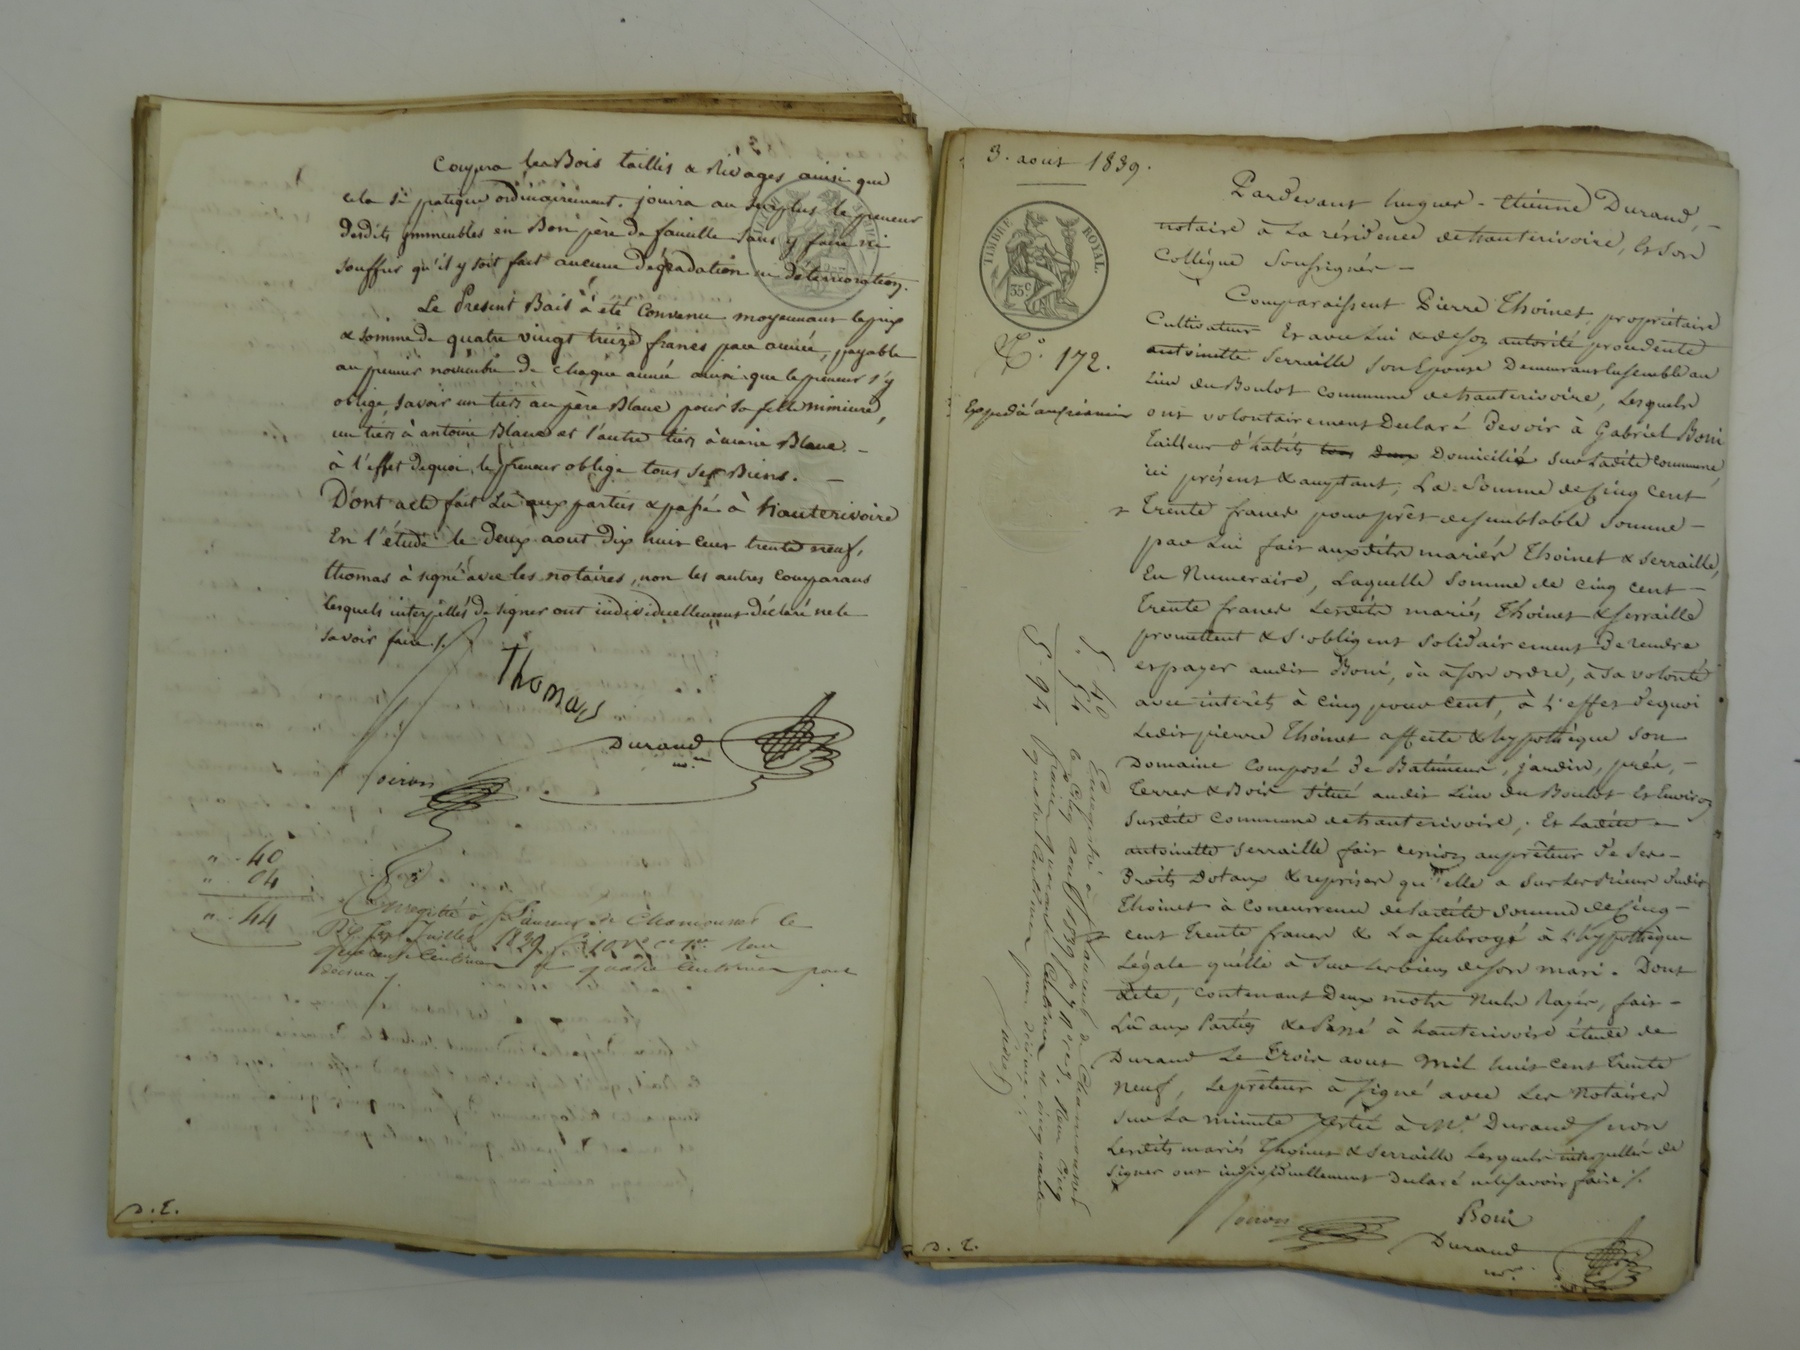 Coupera les Bois taillis & Rivages ainsi que
cela se pratique ordinairement. jouira au surplus le preneur
desdits immeubles en Bon père de famille sans y faire ni
souffrir qu'il y soit fait aucune dégradation ni détérioration.
Le Present Bail à été Convenu moyennant le prix
& somme de quatre vingt treize francs par année, payable
au premier novembre de chaque année ainsi que le preneur s'y
oblige, savoir un tiers au père Blanc pour sa fille mineure,
un tiers à antoine Blanc et l'autre tiers à marie Blanc. —
à l'effet dequoi, le preneur oblige tous ses Biens. —
Dont acte fait Lû aux parties & passé à hauterivoire
En l'étude le Deux aout dix huit cent trente neuf,
thomas à signé avec les notaires, non les autres comparans
lesquels interpellés de signer ont individuellement déclaré ne le
savoir faire /.
Thomas
Durand
nre
" . 40
" . 04
" . 44
Enregistré à St Laurent de Chamousset le
1839
quarante Centimes et quatre Centimes pour
décime
D. E.
3. aout 1839.
TIMBRE ROYAL.
35 c
No. 172.
Expedié au créancier
Pardevant hugues-Etienne Durand, —
notaire à La résidence de hauterivoire, & son
Collègue Soussignés —
Comparaissent Pierre Thoinet, propriétaire
Cultivateur Et avec Lui & de son autorité procedente
antoinette Serraille son Epouse Demeurant Ensemble au
Lieu du Boulot commune de hauterivoire, Lesquels
ont volontairement Declaré Devoir à Gabriel Boni
Tailleur d'habits tous deux Domicilié sur Ladite Commune,
ici présent & acceptant, La Somme de Cinq Cent
Trente francs pour prêt de semblable somme —
par Lui fait auxdits mariés Thoinet & Serraille,
En Numeraire, Laquelle Somme de cinq cent —
Trente francs Lesdits mariés Thoinet & Serraille
promettent & s'obligent solidairement De rendre
et payer audit Boni, où à son ordre, à sa volonté
avec intérêts à cinq pour cent, à L'effet Dequoi
Ledit pierre Thoinet affecte & hypothèque son
Domaine Composé De Batimens, jardin, prés, —
Terres & Bois Situé audit Lieu du Boulot Et Environ
Surdite Commune de hauterivoire, Et Ladite —
antoinette Serraille fait cession au prêteur de Ses —
Droits Dotaux & reprises qu'elle a sur Led. Sieur dudit
Thoinet à Concurrence de Ladite Somme de Cinq —
cent Trente francs & La subrogé à L'hypothèque
Légale qu'elle à sur Les biens de son mari. Dont
Acte, contenant Deux mots Nuls Rayés, fait —
Lû aux Parties & Passé à hauterivoire étude de
Durand Le Trois aout Mil huit cent Trente
Neuf, Le prêteur à signé avec Les Notaires
sur La minute restée à Me. Durand, non
Lesdits mariés Thoinet & Serraille Lesquels interpellés de
signer ont individuellement Declaré ne le savoir faire /.
Boni
Durand
nre
5 . 40
. 54
5 . 94
Enregistré à St Laurent de Chamousset
le Cinq aout 1839 Reçu Cinq
francs quarante Centimes & cinquante
quatre Centimes pour décime
D. E.